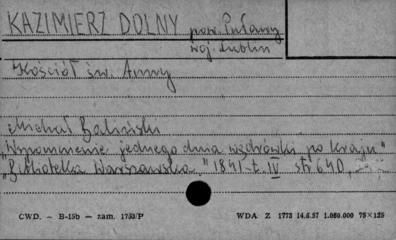 KAZIMIERZ DOLNY pow. Puławy
woj. Lublin
Kościół św. Anny
Michał Baliński
"Wspomnienie jednego dnia wędrówki po kraju"
"Biblioteka Warszawska" 1841 t. IV str 640,
CWD. - B-15b - zam. 1753/P WDA Z 1773 14.6.57 1.000.000 75×125